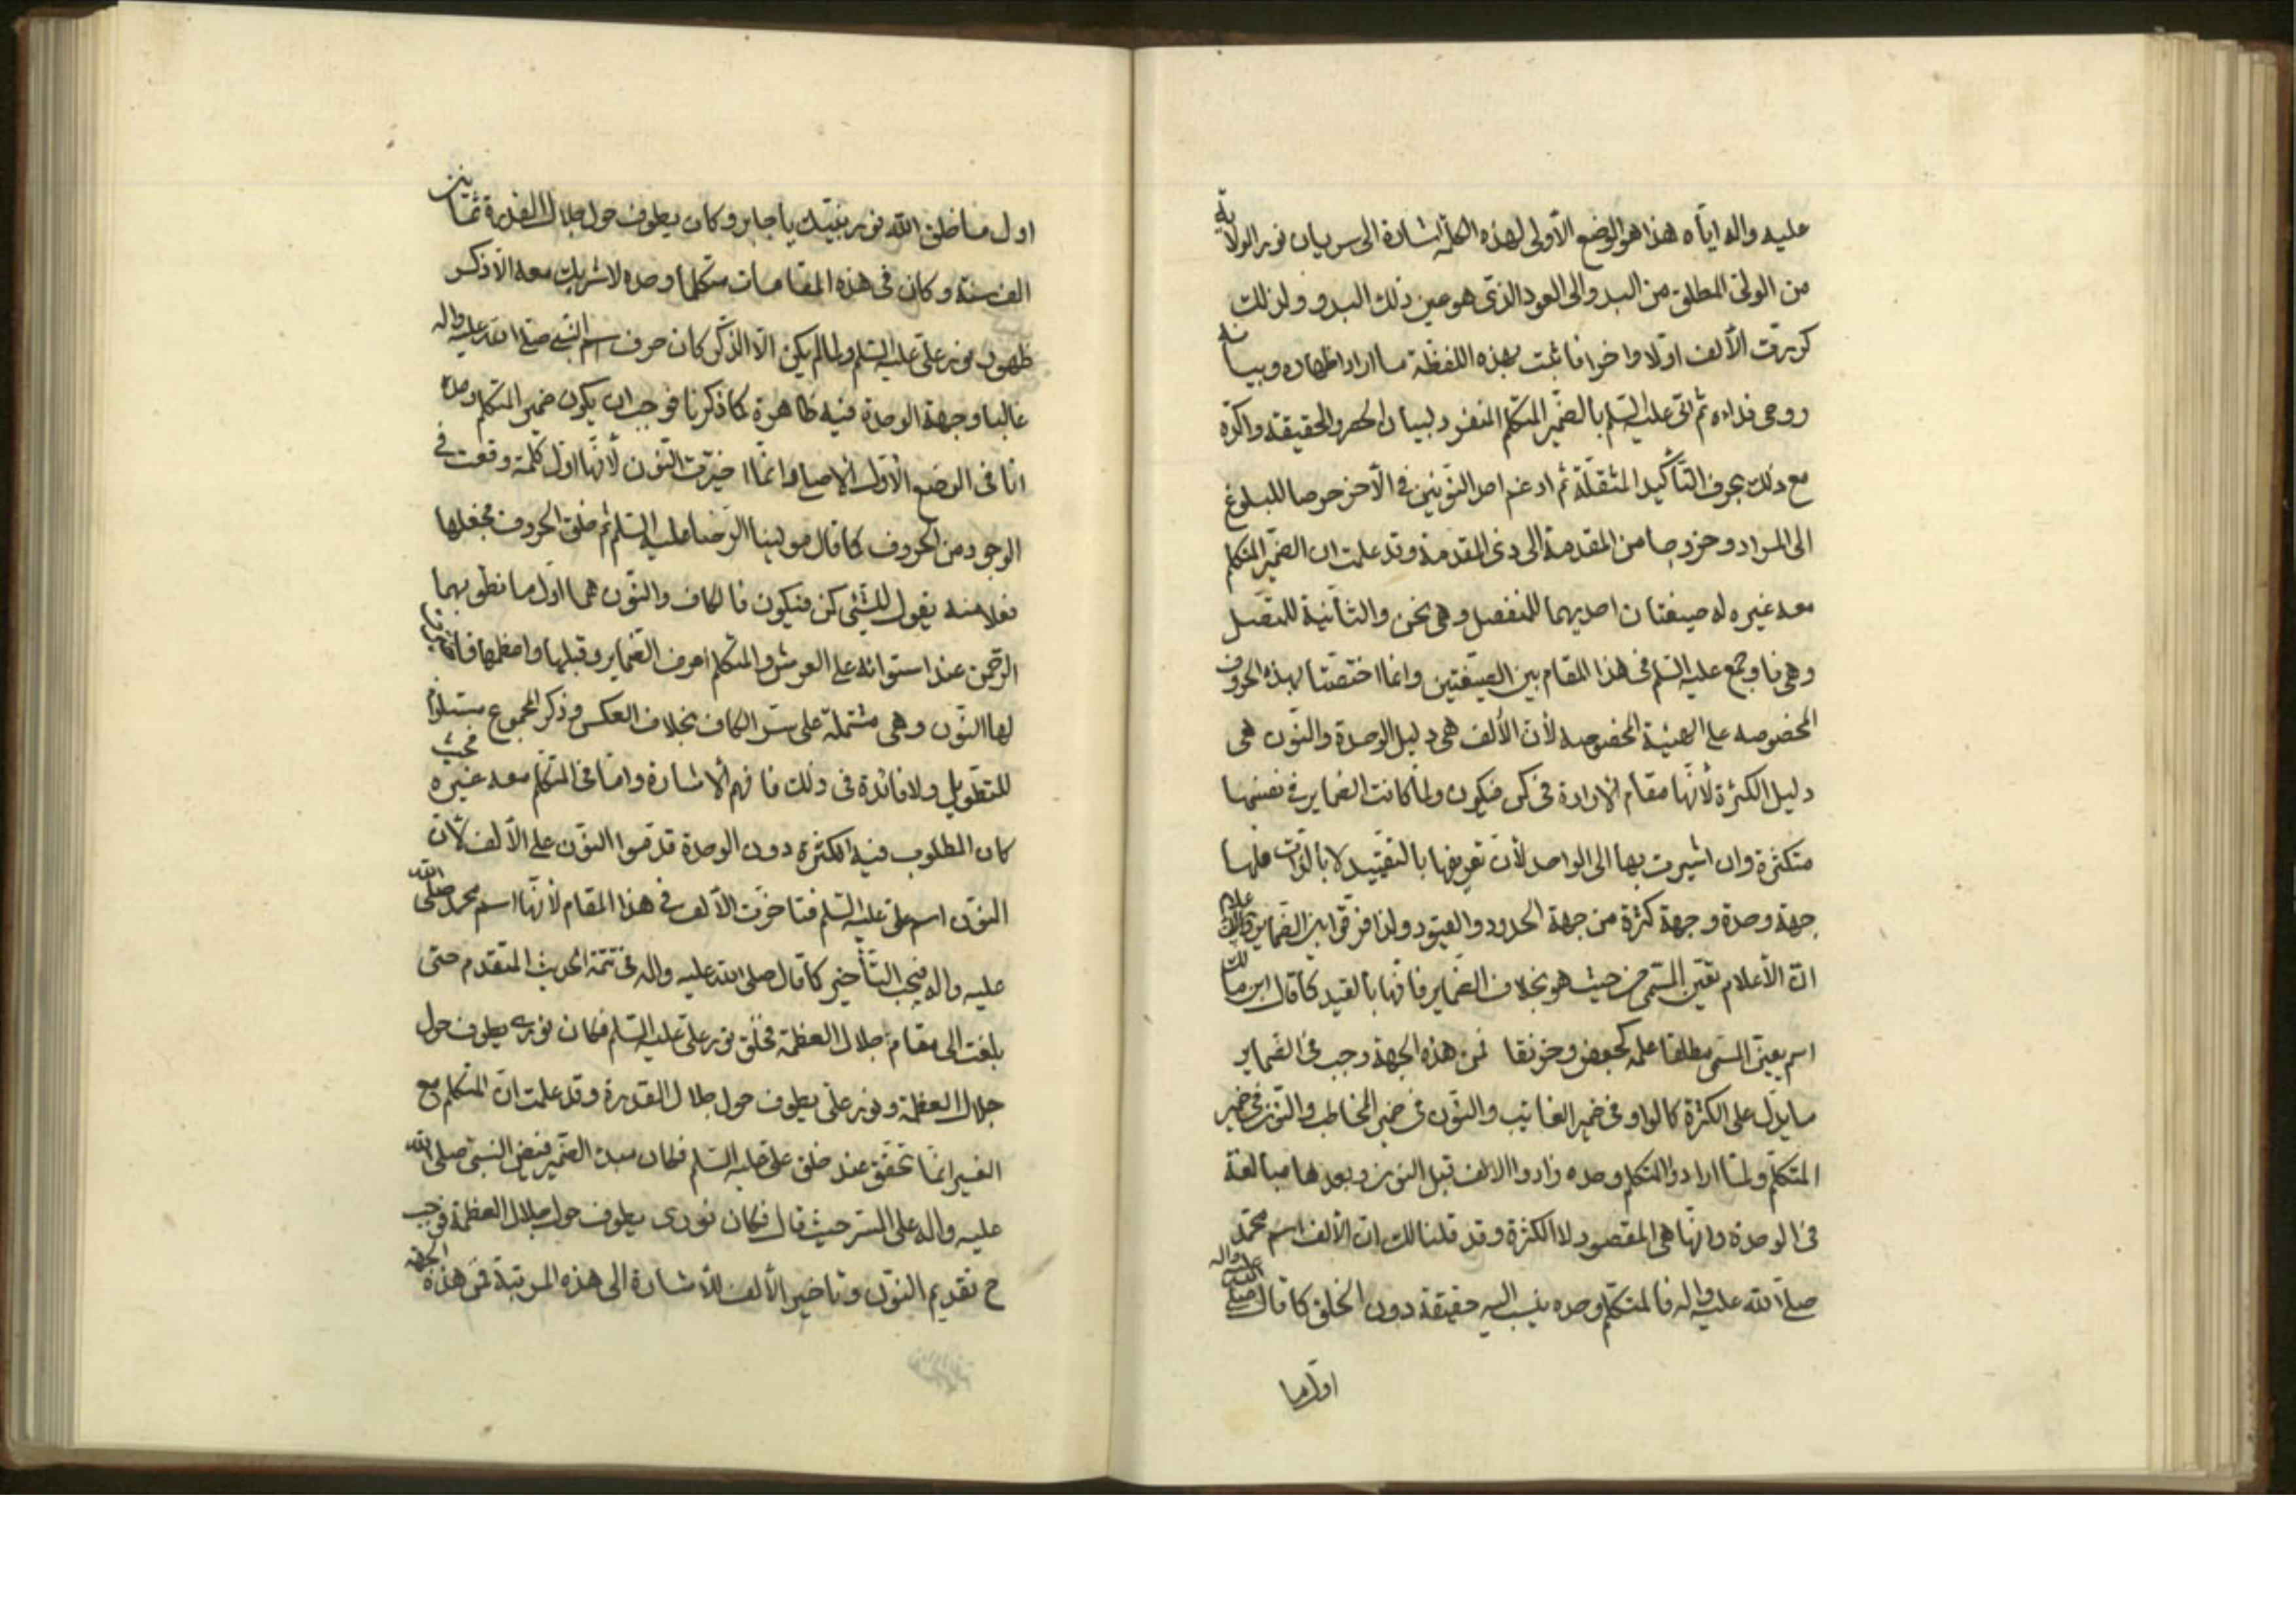 عليه واله اياه هذا هو الوضع الأولى لهذه الكلمة اشارة الى سريان نور الولاية
من الولىّ المطلق من البدو الى العود الذى هو عين ذلك البدو ولذلك
كررت الألف اولا واخرا فاثبت بهذه اللفظة ما اراد اظهاره وبيانه
روحى فداه ثم اتى عليه السلم بالضمير المتكلم المنفرد لبيان الحصر والحقيقة واكّده
مع ذلك بحرف التأكيد المثقلة ثم ادغم احد النونين فى الآخر حرصا للبلوغ
الى المراد وخروجا من المقدمة الى ذى المقدمة وقد علمت ان الضمير المتكلم
معه غيره له صيغتان احديهما للمنفصل وهى نحن والثانية للمتصل
وهى نا وجمع عليه السلم فى هذا المقام بين الصيغتين وانما اختصتا بهذه الحروف
المخصوصه على الهيئة المخصوصه لأن الألف هى دليل الوحدة والنون هى
دليل الكثرة لأنها مقام الارادة فى كن فيكون ولما كانت الضماير فى نفسها
متكثرة وان اشيرت بها الى الواحد لأن تعريفها بالتقييد لا بالذات فلها
جهة وحدة وجهة كثرة من جهة الحدود والقيود ولذا فرقوا بين الضماير والاعلام
انّ الأعلام تعيّن المسمّى من حيث هو بخلاف الضماير فانها بالقيد كما قال ابن مالك
اسم يعين المسمى مطلقا علمه كجعفر وخرنقا فمن هذه الجهة وجب فى الضماير
ما يدل على الكثرة كالواو فى ضمير الغائب والنون فى ضمير المخاطب والنون فى ضمير
المتكلم ولما ارادوا المتكلم وحده زادوا الالف قبل النون وبعدها مبالغة
فى الوحدة وانها هى المقصود لا الكثرة وقد قلنا لك ان الألف اسم محمد
صلى الله عليه واله فالمتكلم وحده ينسب اليه حقيقة دون الخلق كما قال النبى صلى عليه واله
اول ما
اول ما خلق الله نور نبيّك يا جابر وكان يطوف حول جلال القدرة ثمانين
الف سنة وكان فى هذه المقامات متكلما وحده لا شريك معه الا ذكر
ظهور نور علىّ عليه السلم ولما لم يكن الا الذكر كان حرف اسم النبى صلى الله عليه واله
غالبا وجهة الوحدة فيه ظاهرة كما ذكرنا فوجب ان يكون ضمير المتكلم وحده
انا فى الوضع الأول الاصلى وانما اختيرت النون لأنها اول كلمة وقعت فى
الوجود من الحروف كما قال مولينا الرضا عليه السلم ثم خلق الحروف فجعلها
فعلا منه يقول للشئ كن فيكون فالكاف والنون هما اول ما نطق بهما
الرحمن عند استوائه على العرش والمتكلم اعرف الضماير وقبلها واعظمها فاختاروا
لها النون وهى مشتملة على سر الكاف بخلاف العكس وذكر المجموع مستلزم
للتطويل ولا فائدة فى ذلك فافهم الاشارة واما فى المتكلم معه غيره فحيث
كان المطلوب فيه الكثرة دون الوحدة قدّموا النون على الألف لأن
النون اسم على عليه السلم فتاخرت الألف فى هذا المقام لأنها اسم محمد صلى الله
عليه واله فيجب التأخير كما قال صلى الله عليه واله فى تتمة الحديث المتقدم حتى
بلغت الى مقام جلال العظمة فخلق نور على عليه السلم فكان نورى يطوف حول
جلال العظمة ونور على يطوف حول جلال القدرة وقد علمت انّ المتكلم مع
الغير انما تحقق عند خلق على عليه السلم فكان مبدء الضمير فنص النبى صلى الله
عليه واله على السر حيث قال فكان نورى يطوف حول جلال العظمة فوجب
ح تقديم النون وتاخير الألف للأشارة الى هذه المرتبة فمن هذه الجهة